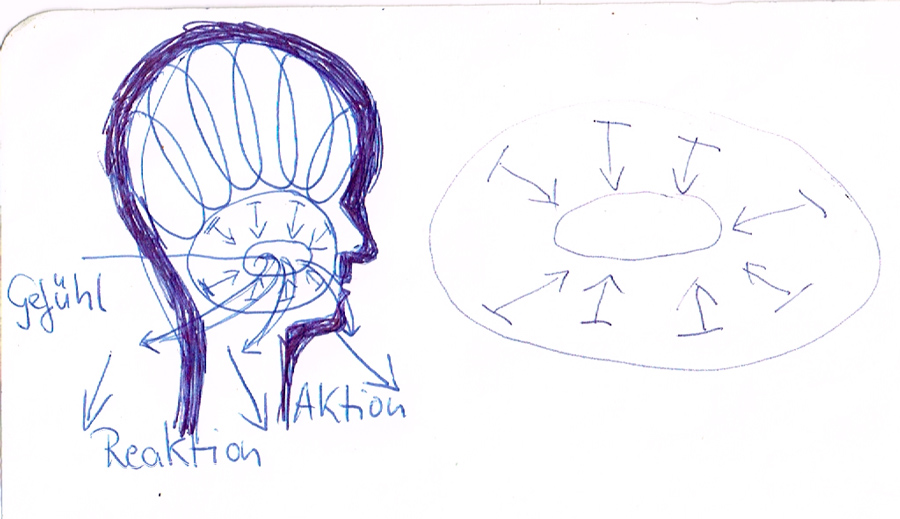 Gefühl
Aktion
Reaktion